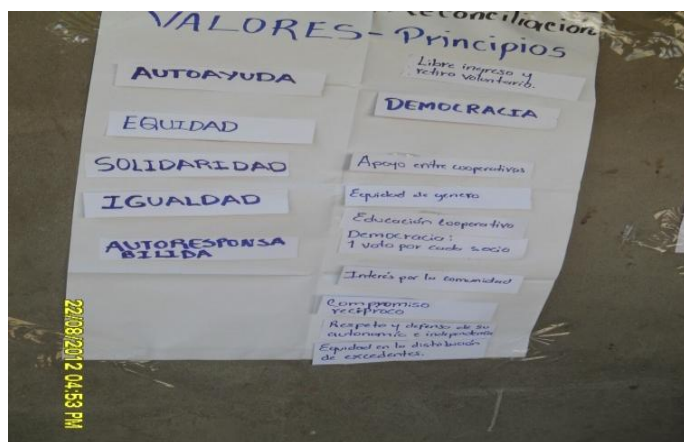 Reconciliacion
VALORES - Principios
AUTOAYUDA
EQUIDAD
SOLIDARIDAD
IGUALDAD
AUTORESPONSA
BILIDA
Libre ingreso y
retiro voluntario.
DEMOCRACIA
Apoyo entre cooperativas
Equidad de genero
Educación cooperativo
Democracia:
1 voto por cada socio
Interés por la comunidad
Compromiso
reciproco
Respeto y defensa de su
autonomía e independencia
Equidad en la distribución
de excedentes.
22/08/2012 04:53 PM